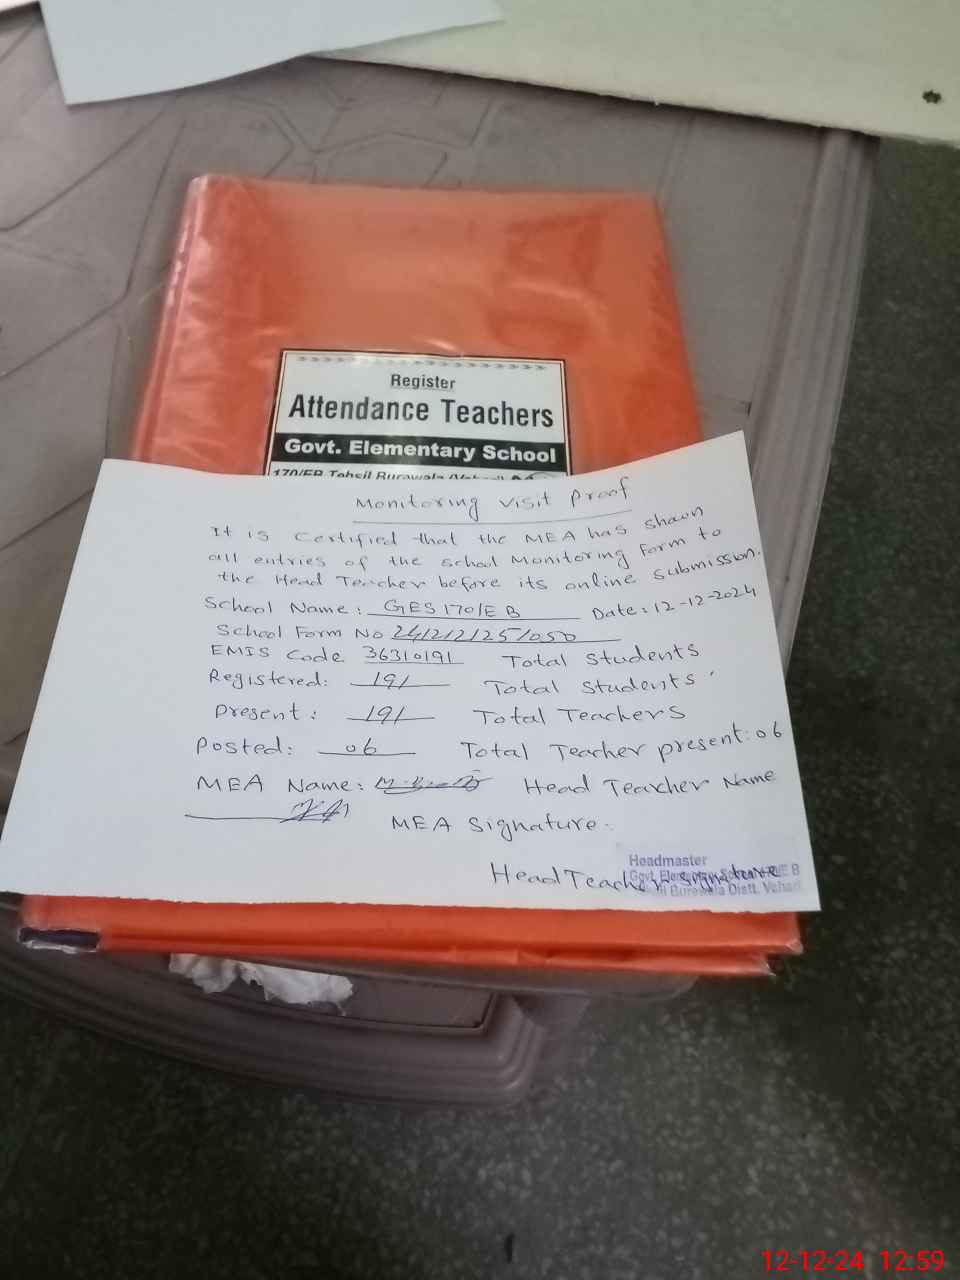 Register
Attendance Teachers
Govt. Elementary School
170/EB Tehsil Burewala
Monitoring Visit Proof
It is Certified that the MEA has shawn
all entries of the school Monitoring Form to
the Head Teacher before its online submission.
School Name: GES 170/E B Date: 12-12-2024
School Form No
EMIS Code 36310191 Total Students
Registered: 191 Total Students
Present: 191 Total Teachers
Posted: 06 Total Teacher present: 06
MEA Name: Head Teacher Name
MEA Signature.
Headmaster
Govt. Elementary E B
Head Teacher Signature
Burewala Distt. Vehari
12-12-24 12:59